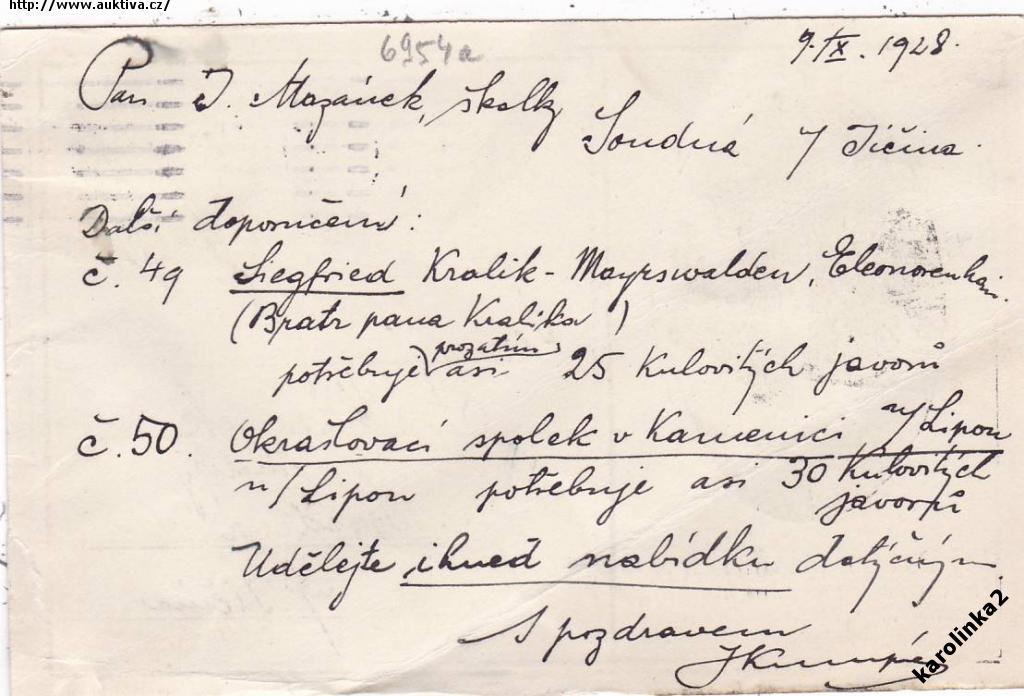 http://www.auktiva.cz/
6954a
9. IX. 1928.
Pan J. Mazánek, školky
Soudná u/ Jičína.
Další doporučení:
č. 49 Siegfried Kralik - Mayrswalden, Eleonorenhain.
(Bratr pana Kralika)
potřebuje prozatím asi 25 kulovitých javorů
č. 50. Okrašlovací spolek v Kamenici n/Lipou
n/Lipou potřebuje asi 30 kulovitých
javorů
Udělejte ihned nabídku dotyčným.
S pozdravem
karolinka2